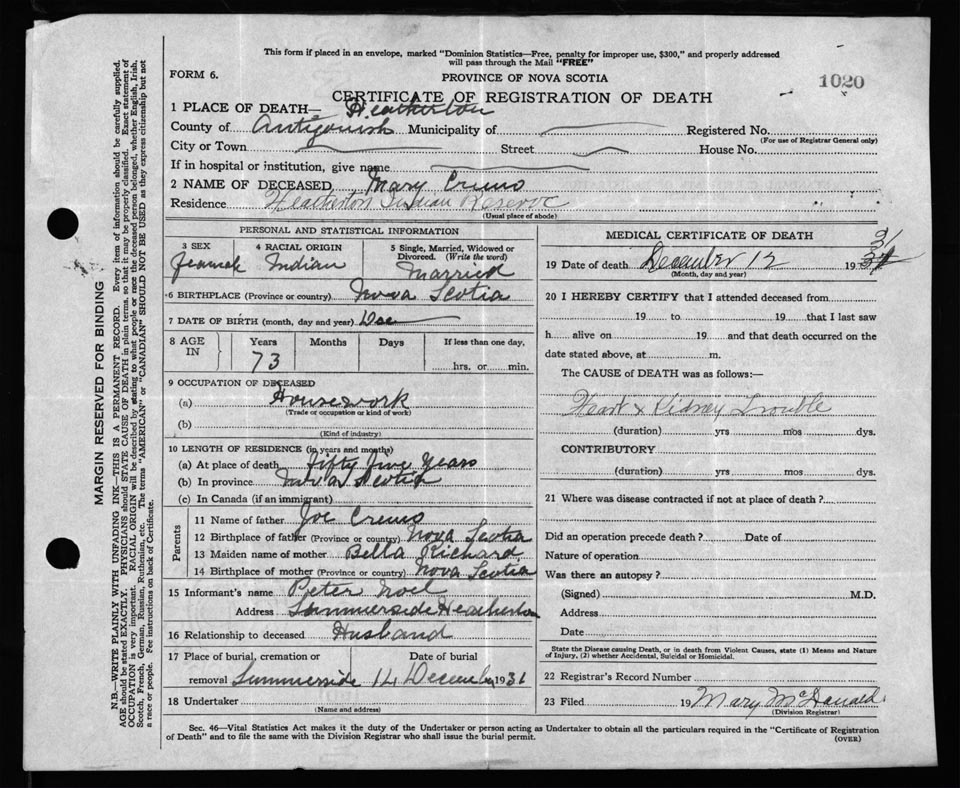 This form if placed in an envelope, marked "Dominion Statistics—Free, penalty for improper use, $300," and properly addressed
will pass through the Mail "FREE"
FORM 6.
PROVINCE OF NOVA SCOTIA
1020
CERTIFICATE OF REGISTRATION OF DEATH
1 PLACE OF DEATH— Heatherton
County of Antigonish Municipality of Registered No.
(For use of Registrar General only)
City or Town Street House No.
If in hospital or institution, give name
2 NAME OF DECEASED Mary Cremo
Residence Heatherton Indian Reserve
(Usual place of abode)
PERSONAL AND STATISTICAL INFORMATION
3 SEX 4 RACIAL ORIGIN 5 Single, Married, Widowed or
Divorced. (Write the word)
Female Indian Married
6 BIRTHPLACE (Province or country) Nova Scotia
7 DATE OF BIRTH (month, day and year)
8 AGE IN Years Months Days If less than one day,
73 hrs. or min.
9 OCCUPATION OF DECEASED
(a) Housework
(Trade or occupation or kind of work)
(b)
(Kind of industry)
10 LENGTH OF RESIDENCE (in years and months)
(a) At place of death Fifty five Years
(b) In province Nova Scotia
(c) In Canada (if an immigrant)
Parents
11 Name of father Joe Cremo
12 Birthplace of father (Province or country) Nova Scotia
13 Maiden name of mother Bella Richard
14 Birthplace of mother (Province or country) Nova Scotia
15 Informant's name Peter Noel
Address Summerside Heatherton
16 Relationship to deceased Husband
17 Place of burial, cremation or Date of burial
removal Summerside 14 December 1931
18 Undertaker
(Name and address)
MEDICAL CERTIFICATE OF DEATH
19 Date of death December 12 193
31
(Month, day and year)
20 I HEREBY CERTIFY that I attended deceased from
19 to 19 that I last saw
h alive on 19 and that death occurred on the
date stated above, at m.
The CAUSE of DEATH was as follows:—
Heart & Kidney Trouble
(duration) yrs mos dys.
CONTRIBUTORY
(duration) yrs mos dys.
21 Where was disease contracted if not at place of death?
Did an operation precede death? Date of
Nature of operation
Was there an autopsy?
(Signed) M.D.
Address
Date
State the Disease causing Death, or in death from Violent Causes, state (1) Means and Nature
of Injury, (2) whether Accidental, Suicidal or Homicidal.
22 Registrar's Record Number
23 Filed 19 Mary McDonald
(Division Registrar)
Sec. 46—Vital Statistics Act makes it the duty of the Undertaker or person acting as Undertaker to obtain all the particulars required in the "Certificate of Registration
of Death" and to file the same with the Division Registrar who shall issue the burial permit.
(OVER)
MARGIN RESERVED FOR BINDING
N.B.—WRITE PLAINLY WITH UNFADING INK—THIS IS A PERMANENT RECORD. Every item of information should be carefully supplied.
AGE should be stated EXACTLY. PHYSICIANS should STATE CAUSE OF DEATH in plain terms, so that it may be properly classified. Exact statement of
OCCUPATION is very important. RACIAL ORIGIN will be described by stating to what people or race the deceased person belonged, whether English, Irish,
Scotch, French, German, Russian, Ruthenian, etc. The terms "AMERICAN" or "CANADIAN" SHOULD NOT BE USED as they express citizenship but not
a race or people. See instructions on back of Certificate.